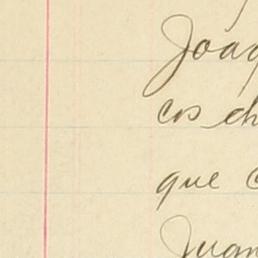 Joaq
cos ch
que c
Juan